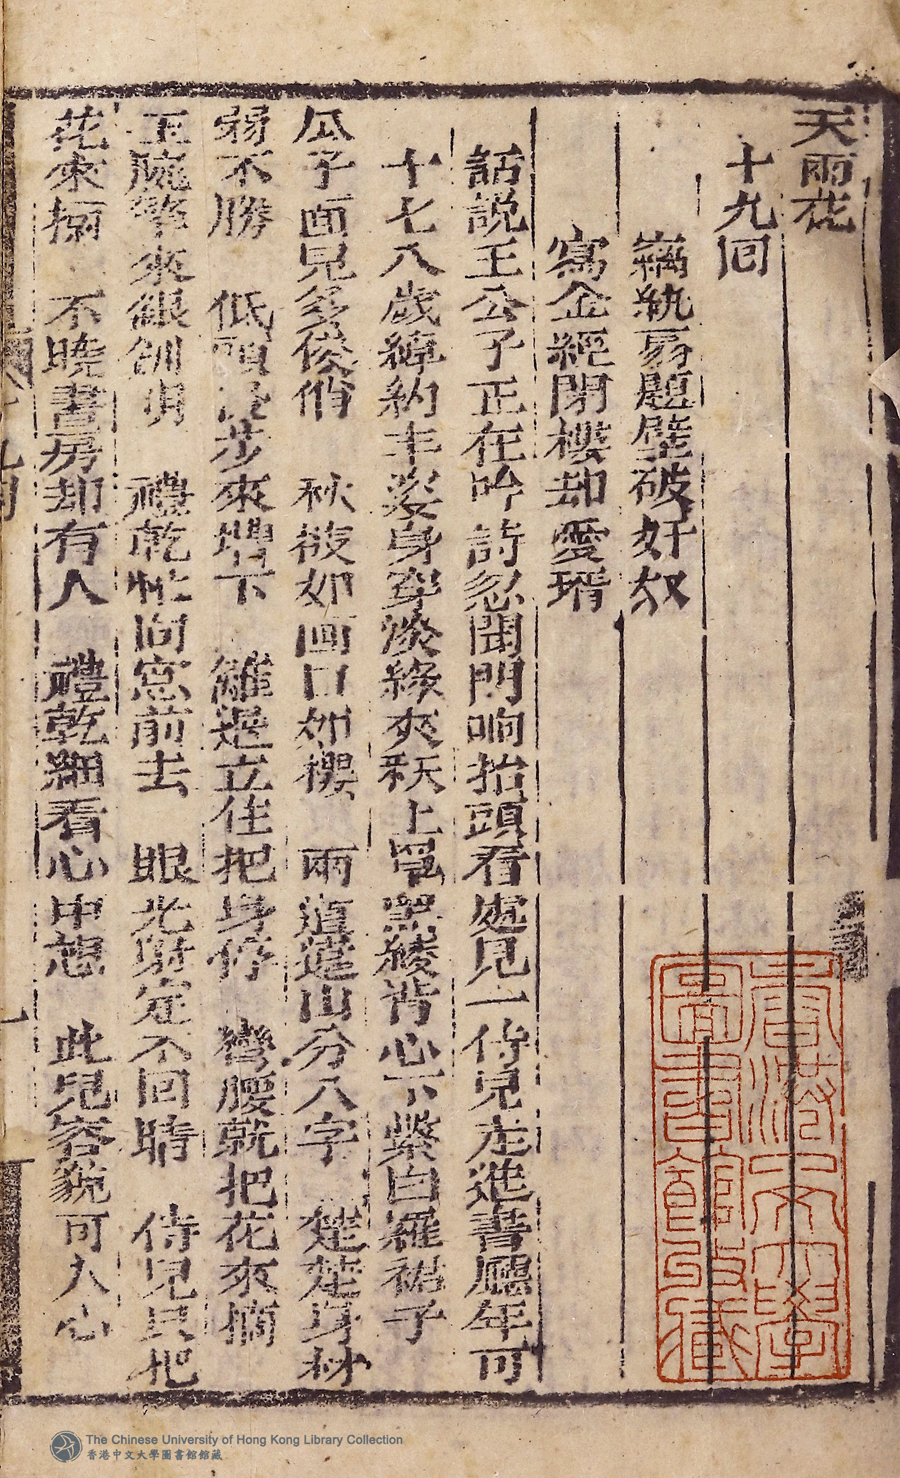 天雨花
十九回
竊紈扇題壁破奸奴
寫金經閉樓却愛壻
話說王公子正在吟詩忽聞門响抬頭看處見一侍兒走進書廳年可
十七八歲綽約丰姿身穿淡綠夾袄上罩黑綾背心下繫白羅裙子
瓜子面兒多俊俏 秋波如画口如櫻 兩道遠山分八字 楚楚身材
弱不勝 低頭漫步來堦下 籬邊立住把身停 彎腰就把花來摘
玉腕拳來銀釧明 禮乾忙向窓前去 眼光射定不回睛 侍兒只把
花來摘 不曉書房却有人 禮乾細看心中想 此兒容貌可人心
十九回
一
香港中文大學
圖書館珍藏
The Chinese University of Hong Kong Library Collection
香港中文大學圖書館館藏